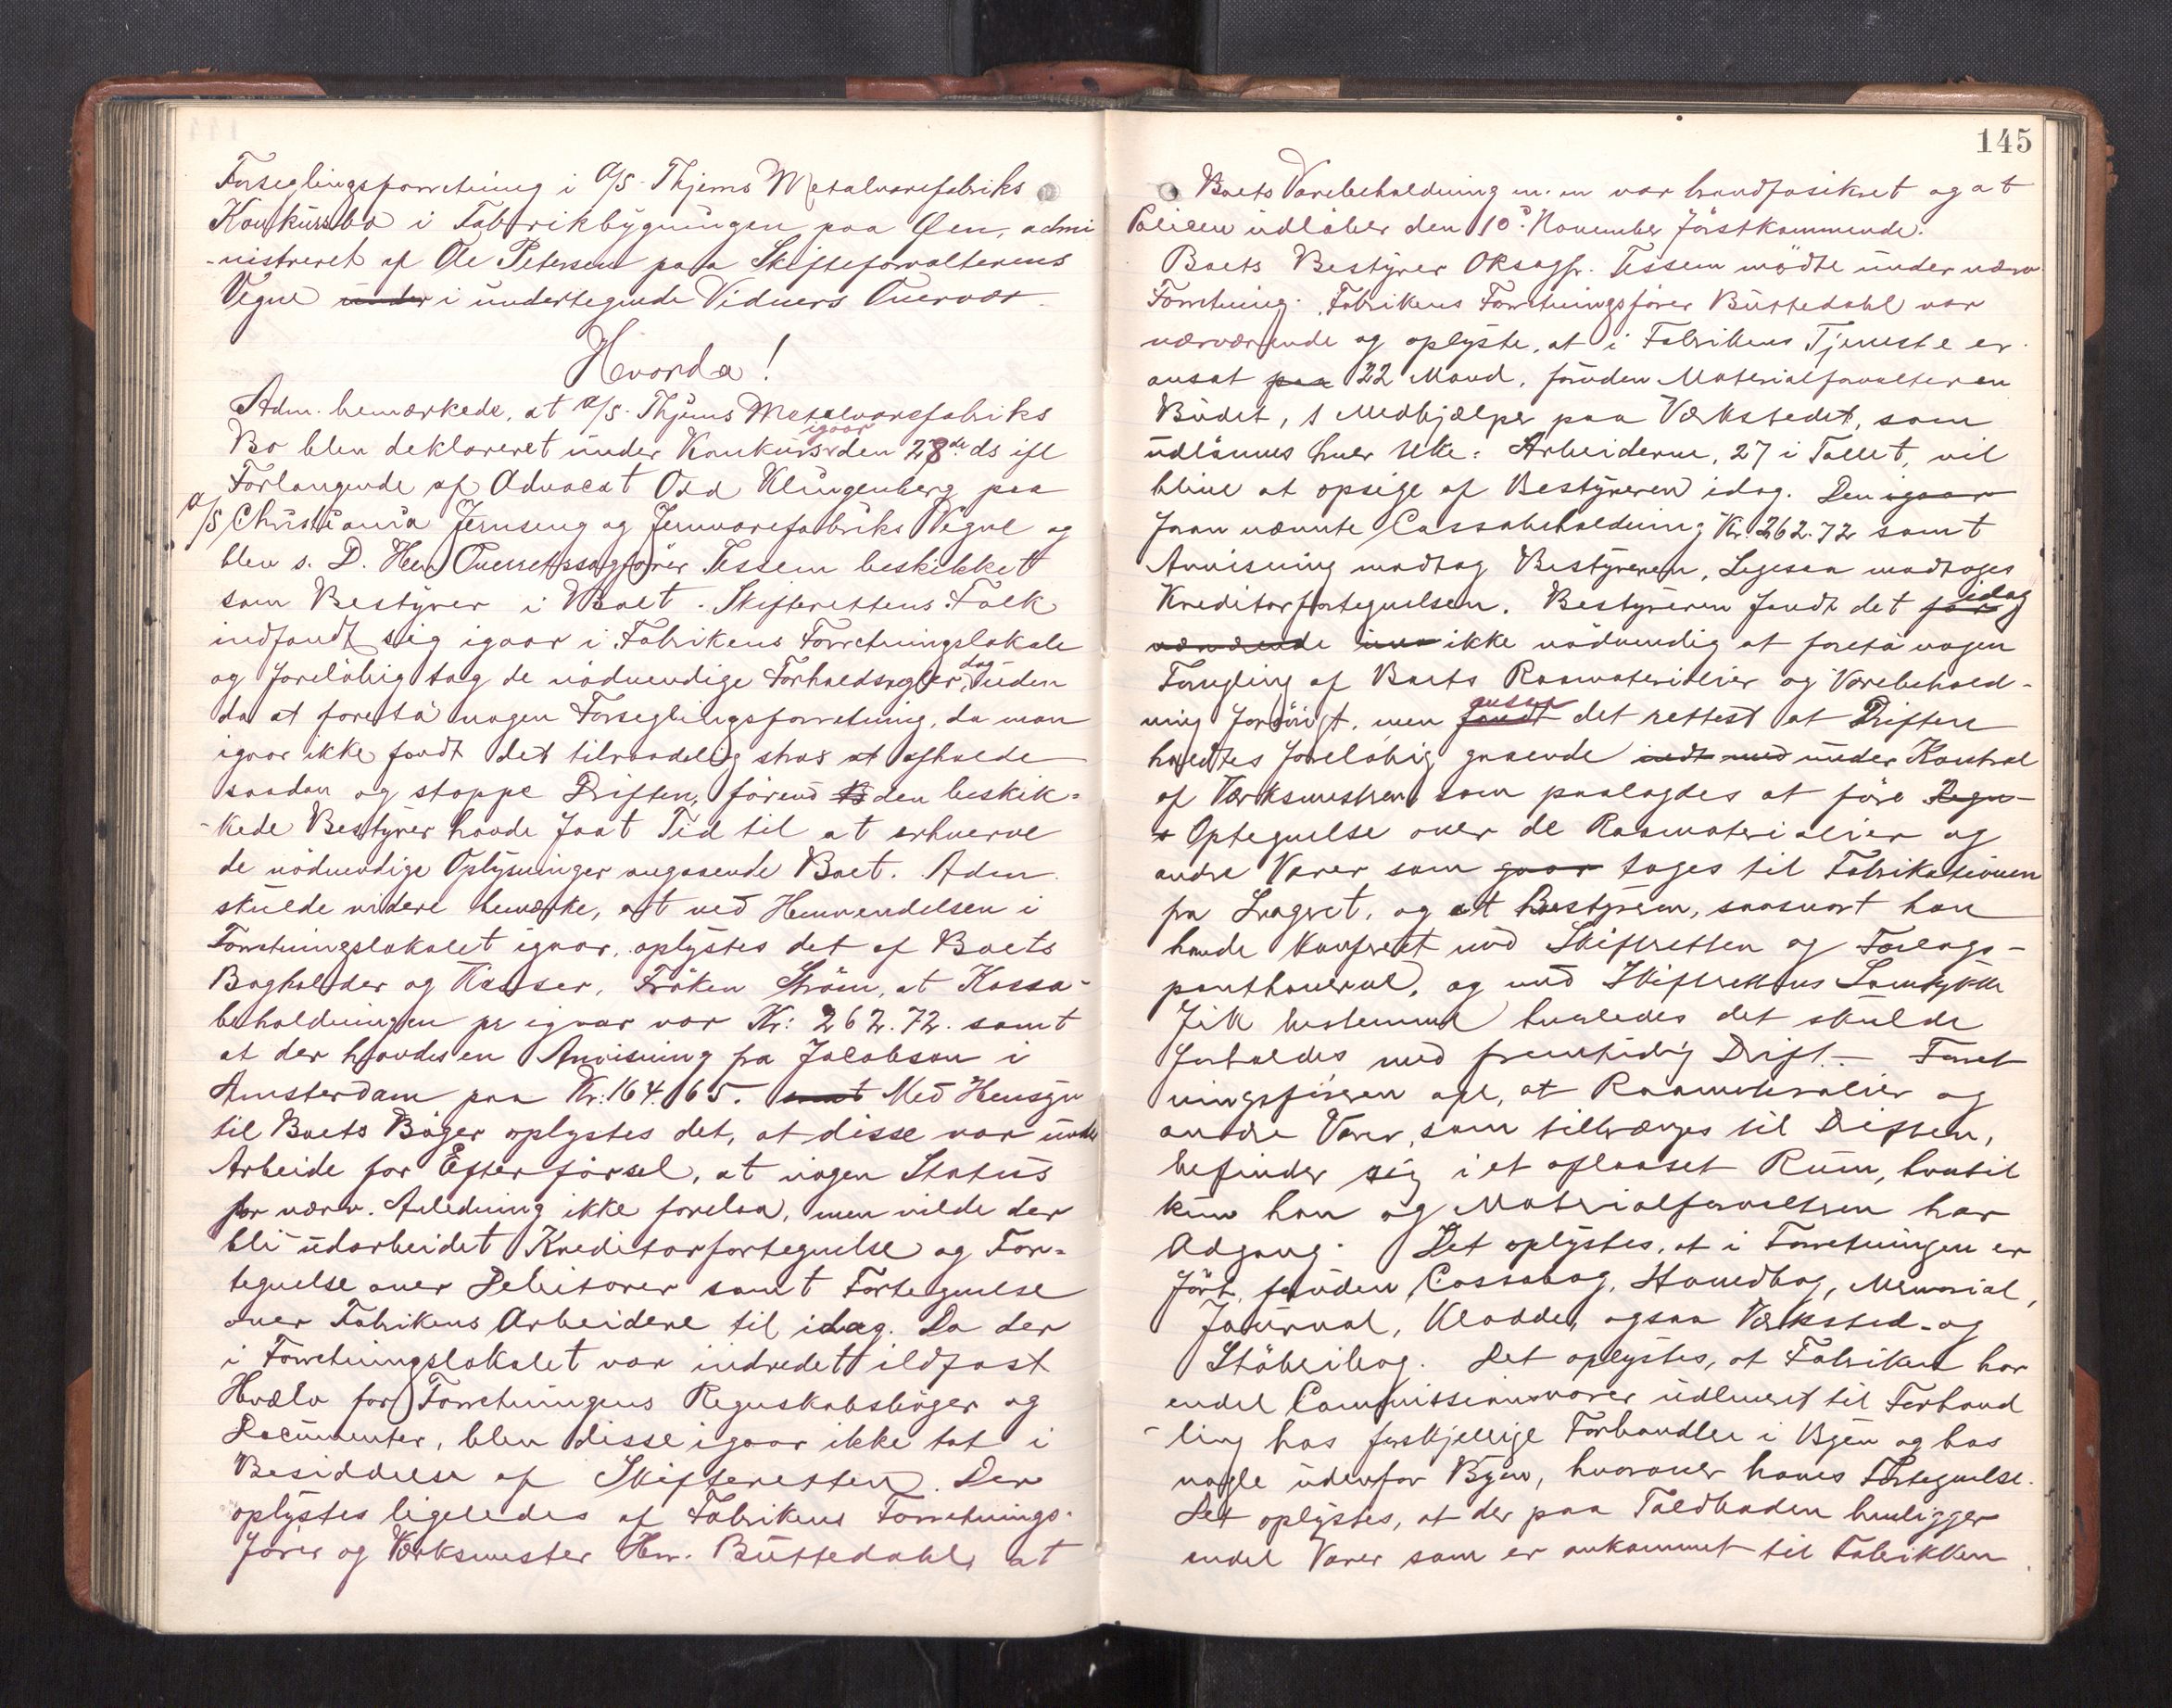 Forseglingsforretning i A/S. Thjems Metalvarefabriks
Konkursbo i Fabrikbygningen paa Øen, admi
-nistreret af Ole Petersen paa Skifteforvalterens
Vegne under i undertegnede Vidners Overvær.
Hvorda!
Adm. bemærkede, at A/S. Thjems Metalvarefabriks
igaar
Bo blev deklareret under Konkurs den 28de ds ifl
Forlangende af Advocat Odd Klingenberg paa
A/S Christiania Jernseng og Jernvarefabriks Vegne og
blev s. D. Herr Overretssagfører Tessem beskikket
som Bestyrer i Boet. Skifterettens Folk
indfandt sig igaar i Fabrikens Forretningslokale
og foreløbig tog de nødvendige Forholdsregler, dog uden
da at foretá nogen Forseglingsforretning, da man
igaar ikke fandt det tilraadelig straks at afholde
saadan og stoppe Driften, førend B den beskik-
-kede Bestyrer havde faat Tid til at erhverve
de nødvendige Oplysninger angaaende Boet. Adm.
skulde videre bemærke, at ved Henvendelsen i
Forretningslokalet igaar, oplystes det af Boets
Bogholder og Kasser, Frøken Strøm, at Kassa-
beholdningen pr igaar var Kr: 262.72. samt
at der havdes en Anvisning fra Jacobson i
Amsterdam paa Kr: 164.65. samt Med Hensyn
til Boets Bøger oplystes det, at disse var under
Arbeide for Efterførsel, at nogen Status
for nærv. Anledning ikke forelaa, men vilde der
bli udarbeidet Kreditorfortegnelse og For-
tegnelse over Debitorer samt Fortegnelse
over Fabrikens Arbeidere til idag. Da der
i Forretningslokalet var indredet ildfast
Hvælv for Forretningens Regnskabsbøger og
Documenter, blev disse igaar ikke tat i
Besiddelse af Skifteretten. Der
oplystes ligeledes af Fabrikens Forretnings-
fører og Værksmester Herr. Buttedahl, at
145
Boets Varebeholdning m. m var brandforsikret og at
Policen udløber den 10de November førstkommende.
Boets Bestyrer ORsagfr. Tessem mødte under nærv.
Forretning. Fabrikens Forretningsfører Buttedahl var
nærværende og oplyste, at i Fabrikens Tjeneste er
ansat paa 22 Mand, foruden Materialforvalteren
Budet, 1 Medhjælper paa Værkstedet, som
udlønnes hver Uke: Arbeiderne, 27 i Tallet, vil
blive at opsige af Bestyreren idag. Den igaar
foran nævnte Cassabeholdning Kr. 262.72 samt
Anvisning modtog Bestyreren, Ligesaa modtoges
idag
Kreditorfortegnelsen. Bestyreren fandt det for
nærværende ikke nødvendig at foretá nogen
Forsegling af Boets Raamaterialier og Varebehold-
anser
ning forøvrigt, men fandt det rettest at Driften
holdtes foreløbig gaaende under Kontrol
af Værksmesteren som paalagdes at føre Regn-
s Optegnelse over de Raamaterialier og
andre Varer som gaar tages til Fabrikationen
fra Lageret, og at Bestyreren, saasnart han
havde konferert med Skifteretten og Forlags-
panthaverne, og med Skifterettens Samtykke
fik bestemme hvorledes det skulde
forholdes med fremtidig Drift.- Forret
ningsføreren opl, at Raamaterialier og
andre Varer, som tiltrænges til Driften,
befinder sig i et aflaaset Rum, hvortil
kun han og Materialforvalteren har
Adgang. Det oplystes, at i Forretningen er
ført, foruden Cassabog, Hovedbog, Memorial,
Journal, Kladde, ogsaa Værksted- og
Støberibog. Det oplystes, at Fabriken har
endel Commissionsvarer udleveret til Forhand
-ling hos forskjellige Forhandlere i Byen og hos
nogle udenfor Byen, hvorover haves Fortegnelse.
Det oplystes, at der paa Toldboden henligger
endel Varer som er ankommet til Fabrikken